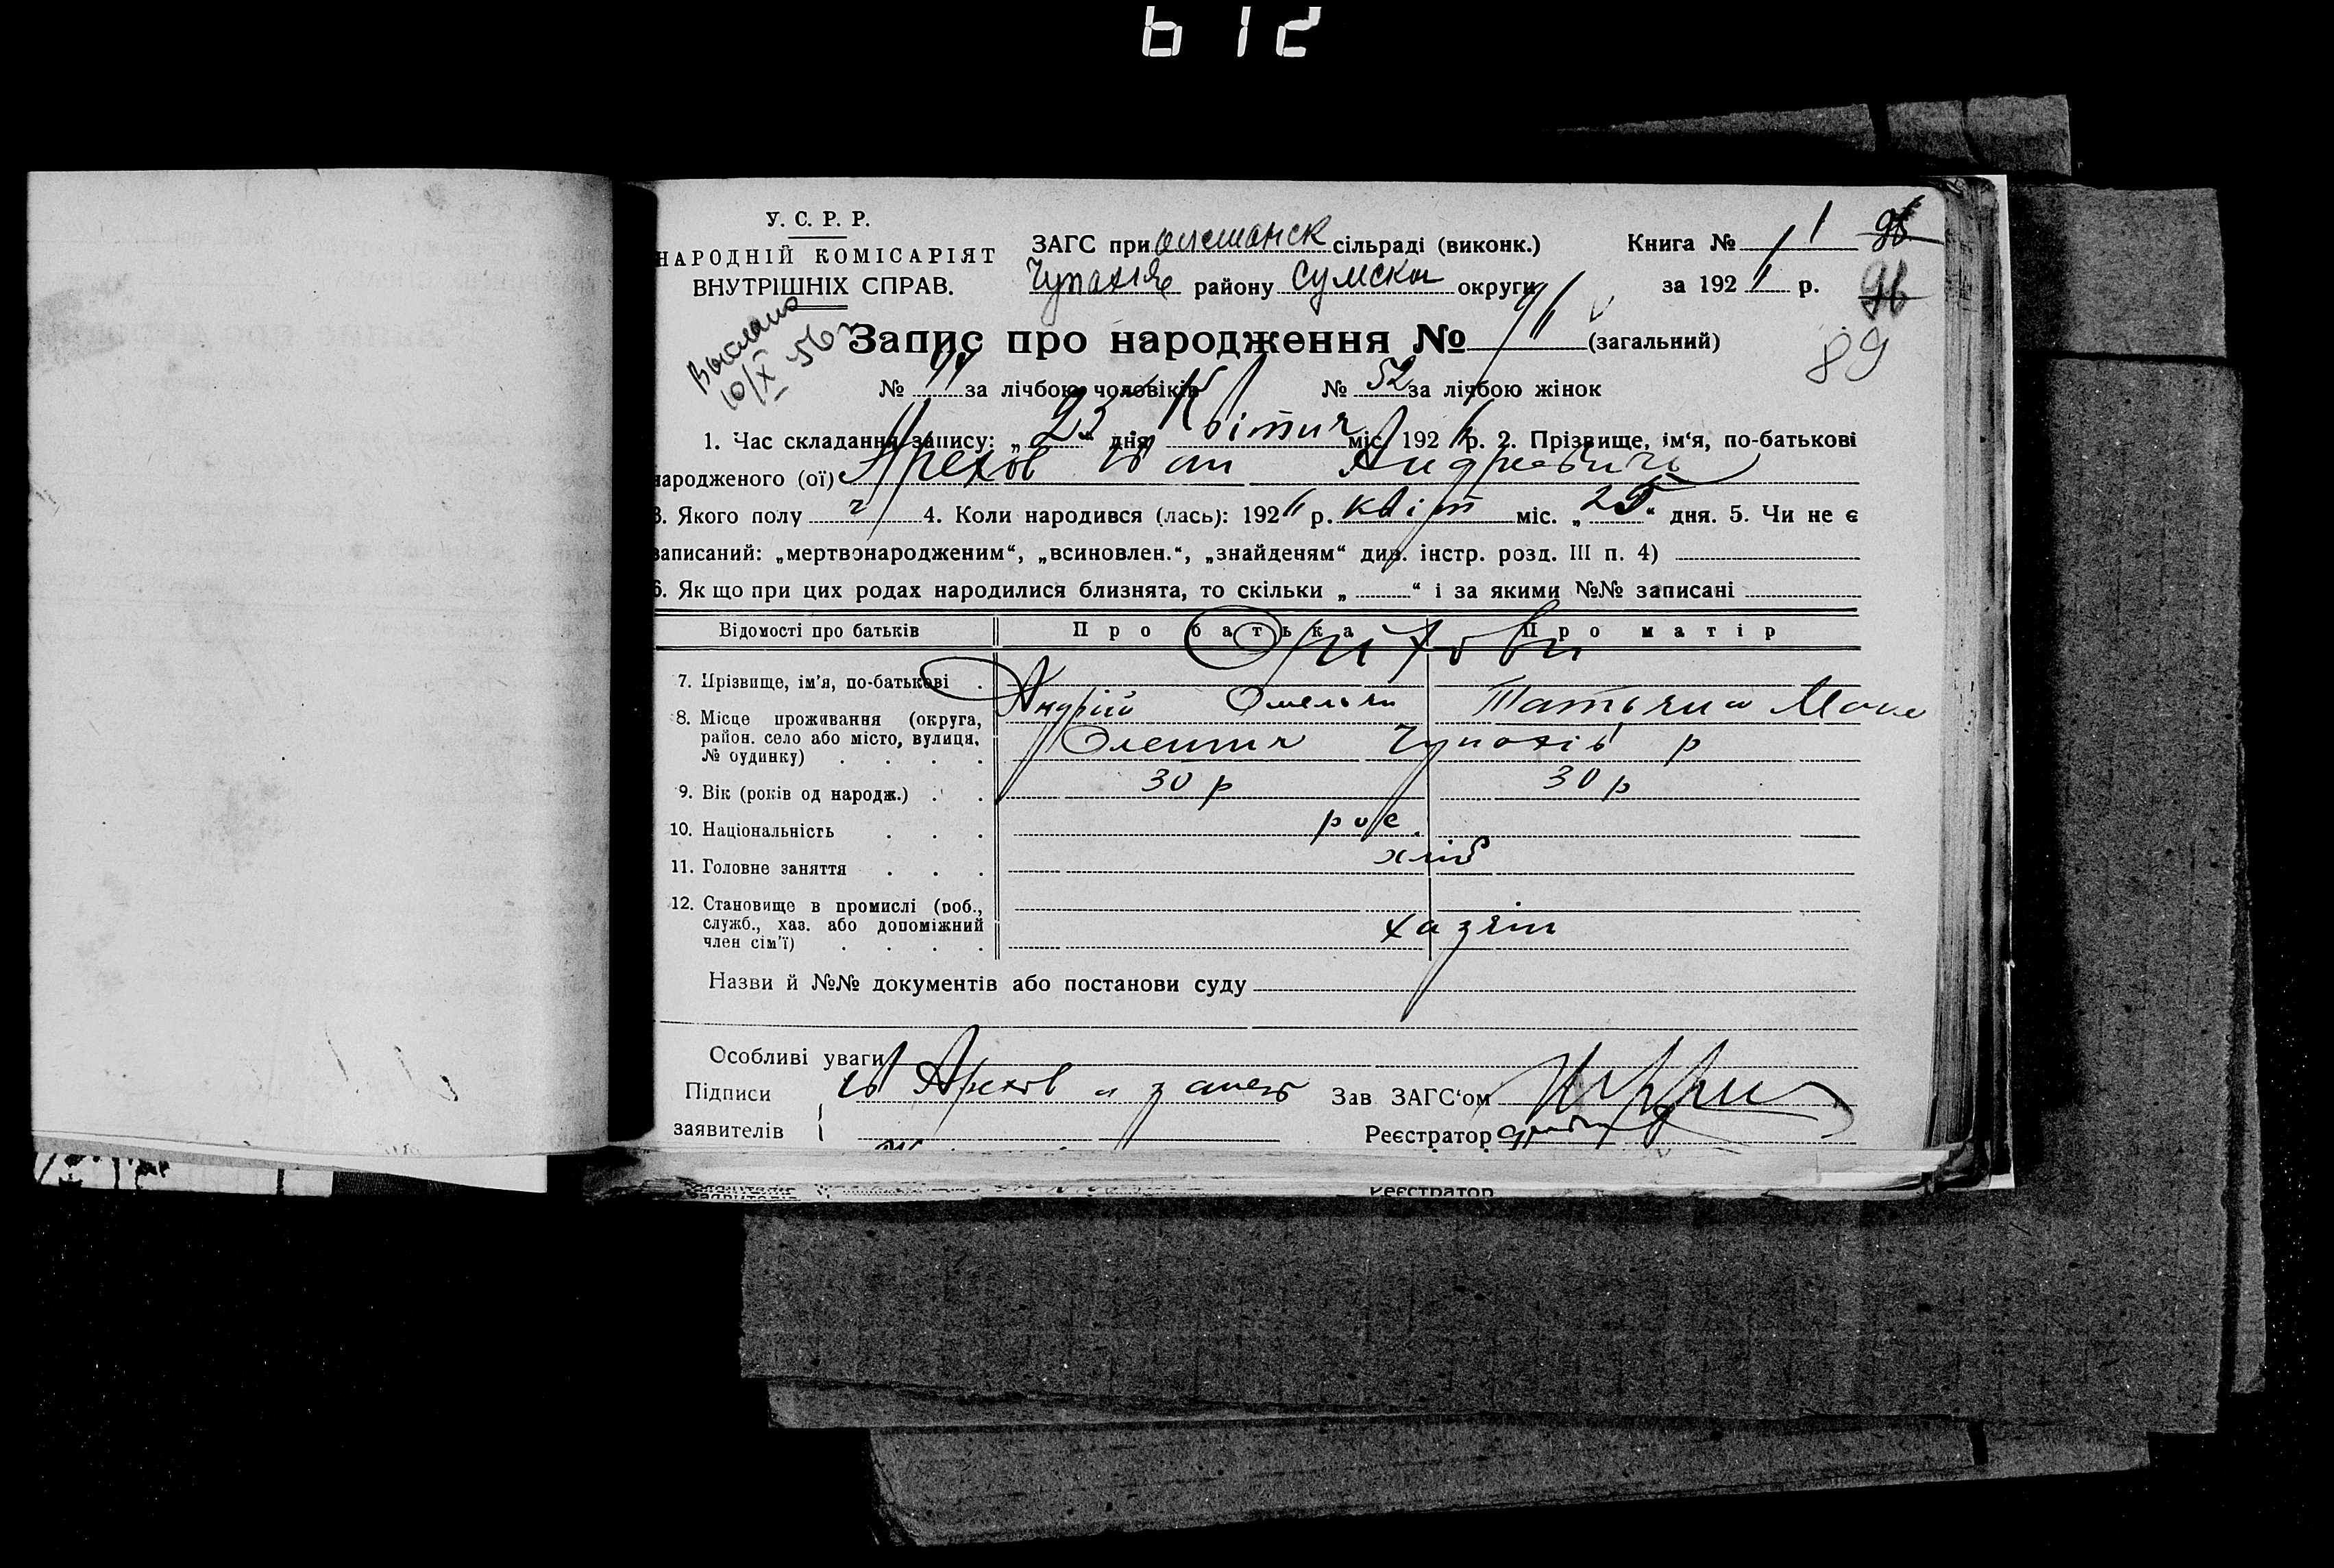 612
У. С. Р. Р.
НАРОДНІЙ КОМІСАРІЯТ
ВНУТРІШНІХ СПРАВ.
ЗАГС при олешанск сільраді (виконк.)
району Сумска округи
Книга № 1
за 192 р.
96
89
Выслано
10/X 56 г
Запис про народження № (загальний)
№ за лічбою чоловіків № 52 за лічбою жінок
1. Час складання запису: „23“ дня Квітня міс. 192 р. 2. Прізвище, ім‘я, по-батькові
народженого (ої) Ів ан Андреевичь
3. Якого полу ч 4. Коли народився (лась): 192 р. квіт міс. „ “ дня. 5. Чи не є
записаний: „мертвонародженим“, „всиновлен.“, „знайденям“ див. інстр. розд. III п. 4)
6. Як що при цих родах народилися близнята, то скільки „ “ і за якими №№ записані
Відомості про батьків Про батька Про матір
7. Прізвище, ім'я, по-батькові Андрій Омельян Татьяна
8. Місце проживання (округа, район. село або місто, вулиця, № будинку) Олешня Чупахів р
9. Вік (років од народж.) 30 р 30 р
10. Національність рос.
11. Головне заняття хліб
12. Становище в промислі (роб., служб., хаз. або допоміжний член сім'ї) хазяін
Назви й №№ документів або постанови суду
Особливі уваги
Підписи
заявителів
Зав ЗАГС‘ом
Реєстратор
Реєстратор